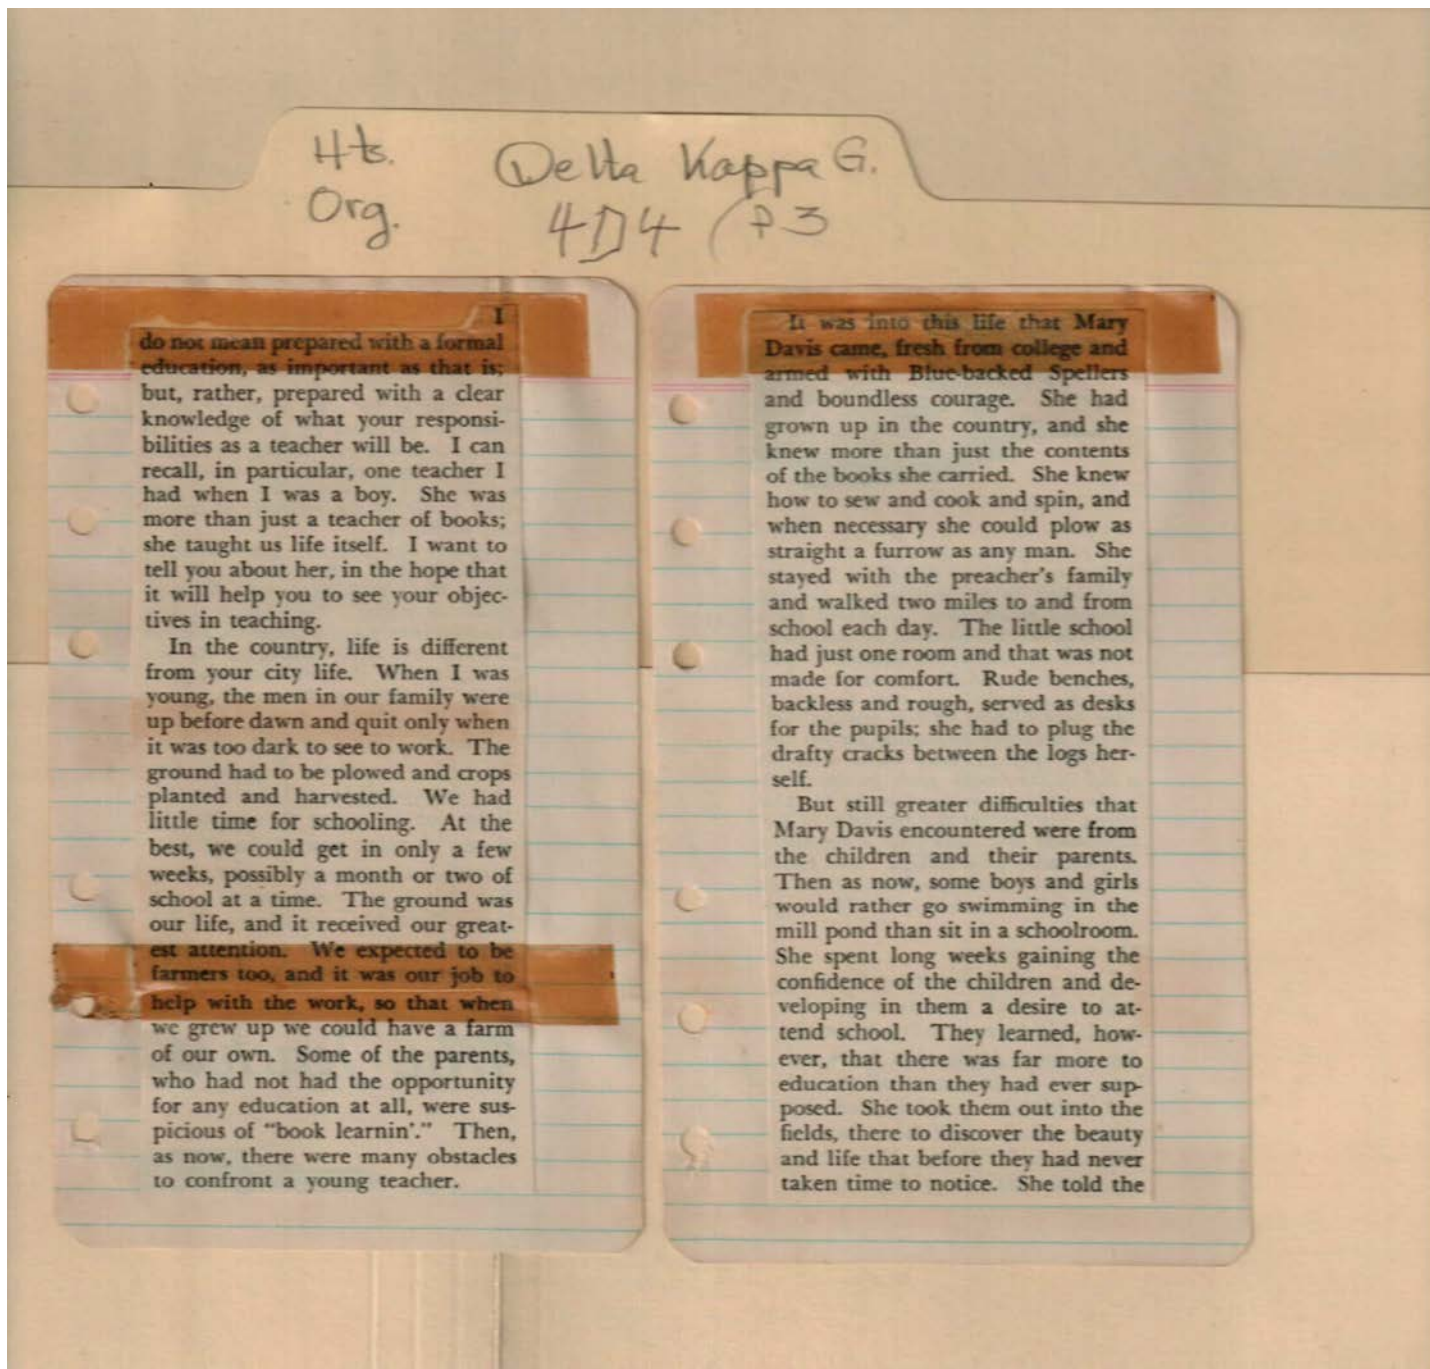 Hts. Delta Kappa G.
Org. 4D4 (P3
I
do not mean prepared with a formal
education, as important as that is;
but, rather, prepared with a clear
knowledge of what your responsi-
bilities as a teacher will be. I can
recall, in particular, one teacher I
had when I was a boy. She was
more than just a teacher of books;
she taught us life itself. I want to
tell you about her, in the hope that
it will help you to see your objec-
tives in teaching.
In the country, life is different
from your city life. When I was
young, the men in our family were
up before dawn and quit only when
it was too dark to see to work. The
ground had to be plowed and crops
planted and harvested. We had
little time for schooling. At the
best, we could get in only a few
weeks, possibly a month or two of
school at a time. The ground was
our life, and it received our great-
est attention. We expected to be
farmers too, and it was our job to
help with the work, so that when
we grew up we could have a farm
of our own. Some of the parents,
who had not had the opportunity
for any education at all, were sus-
picious of "book learnin'." Then,
as now, there were many obstacles
to confront a young teacher.
It was into this life that Mary
Davis came, fresh from college and
armed with Blue-backed Spellers
and boundless courage. She had
grown up in the country, and she
knew more than just the contents
of the books she carried. She knew
how to sew and cook and spin, and
when necessary she could plow as
straight a furrow as any man. She
stayed with the preacher's family
and walked two miles to and from
school each day. The little school
had just one room and that was not
made for comfort. Rude benches,
backless and rough, served as desks
for the pupils; she had to plug the
drafty cracks between the logs her-
self.
But still greater difficulties that
Mary Davis encountered were from
the children and their parents.
Then as now, some boys and girls
would rather go swimming in the
mill pond than sit in a schoolroom.
She spent long weeks gaining the
confidence of the children and de-
veloping in them a desire to at-
tend school. They learned, how-
ever, that there was far more to
education than they had ever sup-
posed. She took them out into the
fields, there to discover the beauty
and life that before they had never
taken time to notice. She told the